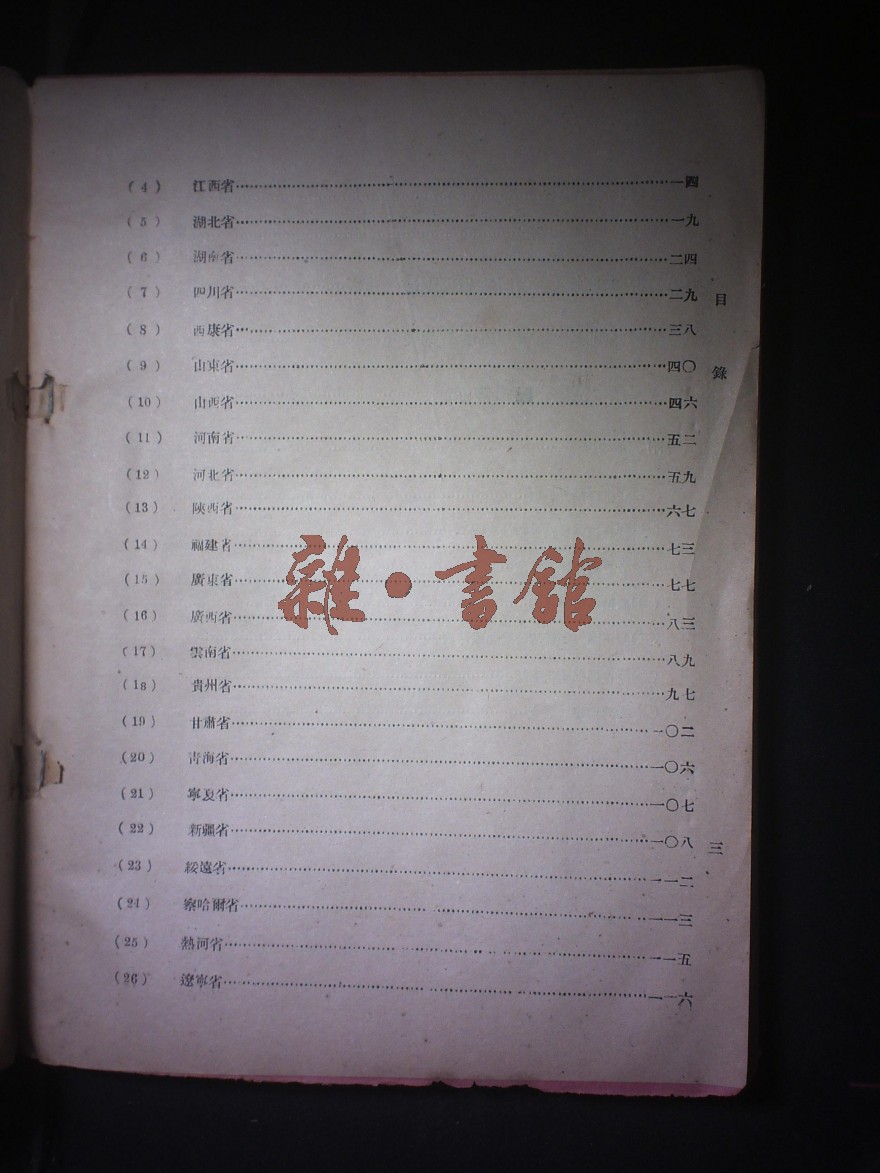 (4) 江西省……一四
(5) 湖北省……一九
(6) 湖南省……二四
(7) 四川省……二九
(8) 西康省……三八
(9) 山東省……四〇
(10) 山西省……四六
(11) 河南省……五二
(12) 河北省……五九
(13) 陝西省……六七
(14) 福建省……七三
(15) 廣東省……七七
(16) 廣西省……八三
(17) 雲南省……八九
(18) 貴州省……九七
(19) 甘肅省……一〇二
(20) 青海省……一〇六
(21) 寧夏省……一〇七
(22) 新疆省……一〇八
(23) 綏遠省……一一二
(24) 察哈爾省……一一三
(25) 熱河省……一一五
(26) 遼寧省……一一六
目錄
三
雜·書館